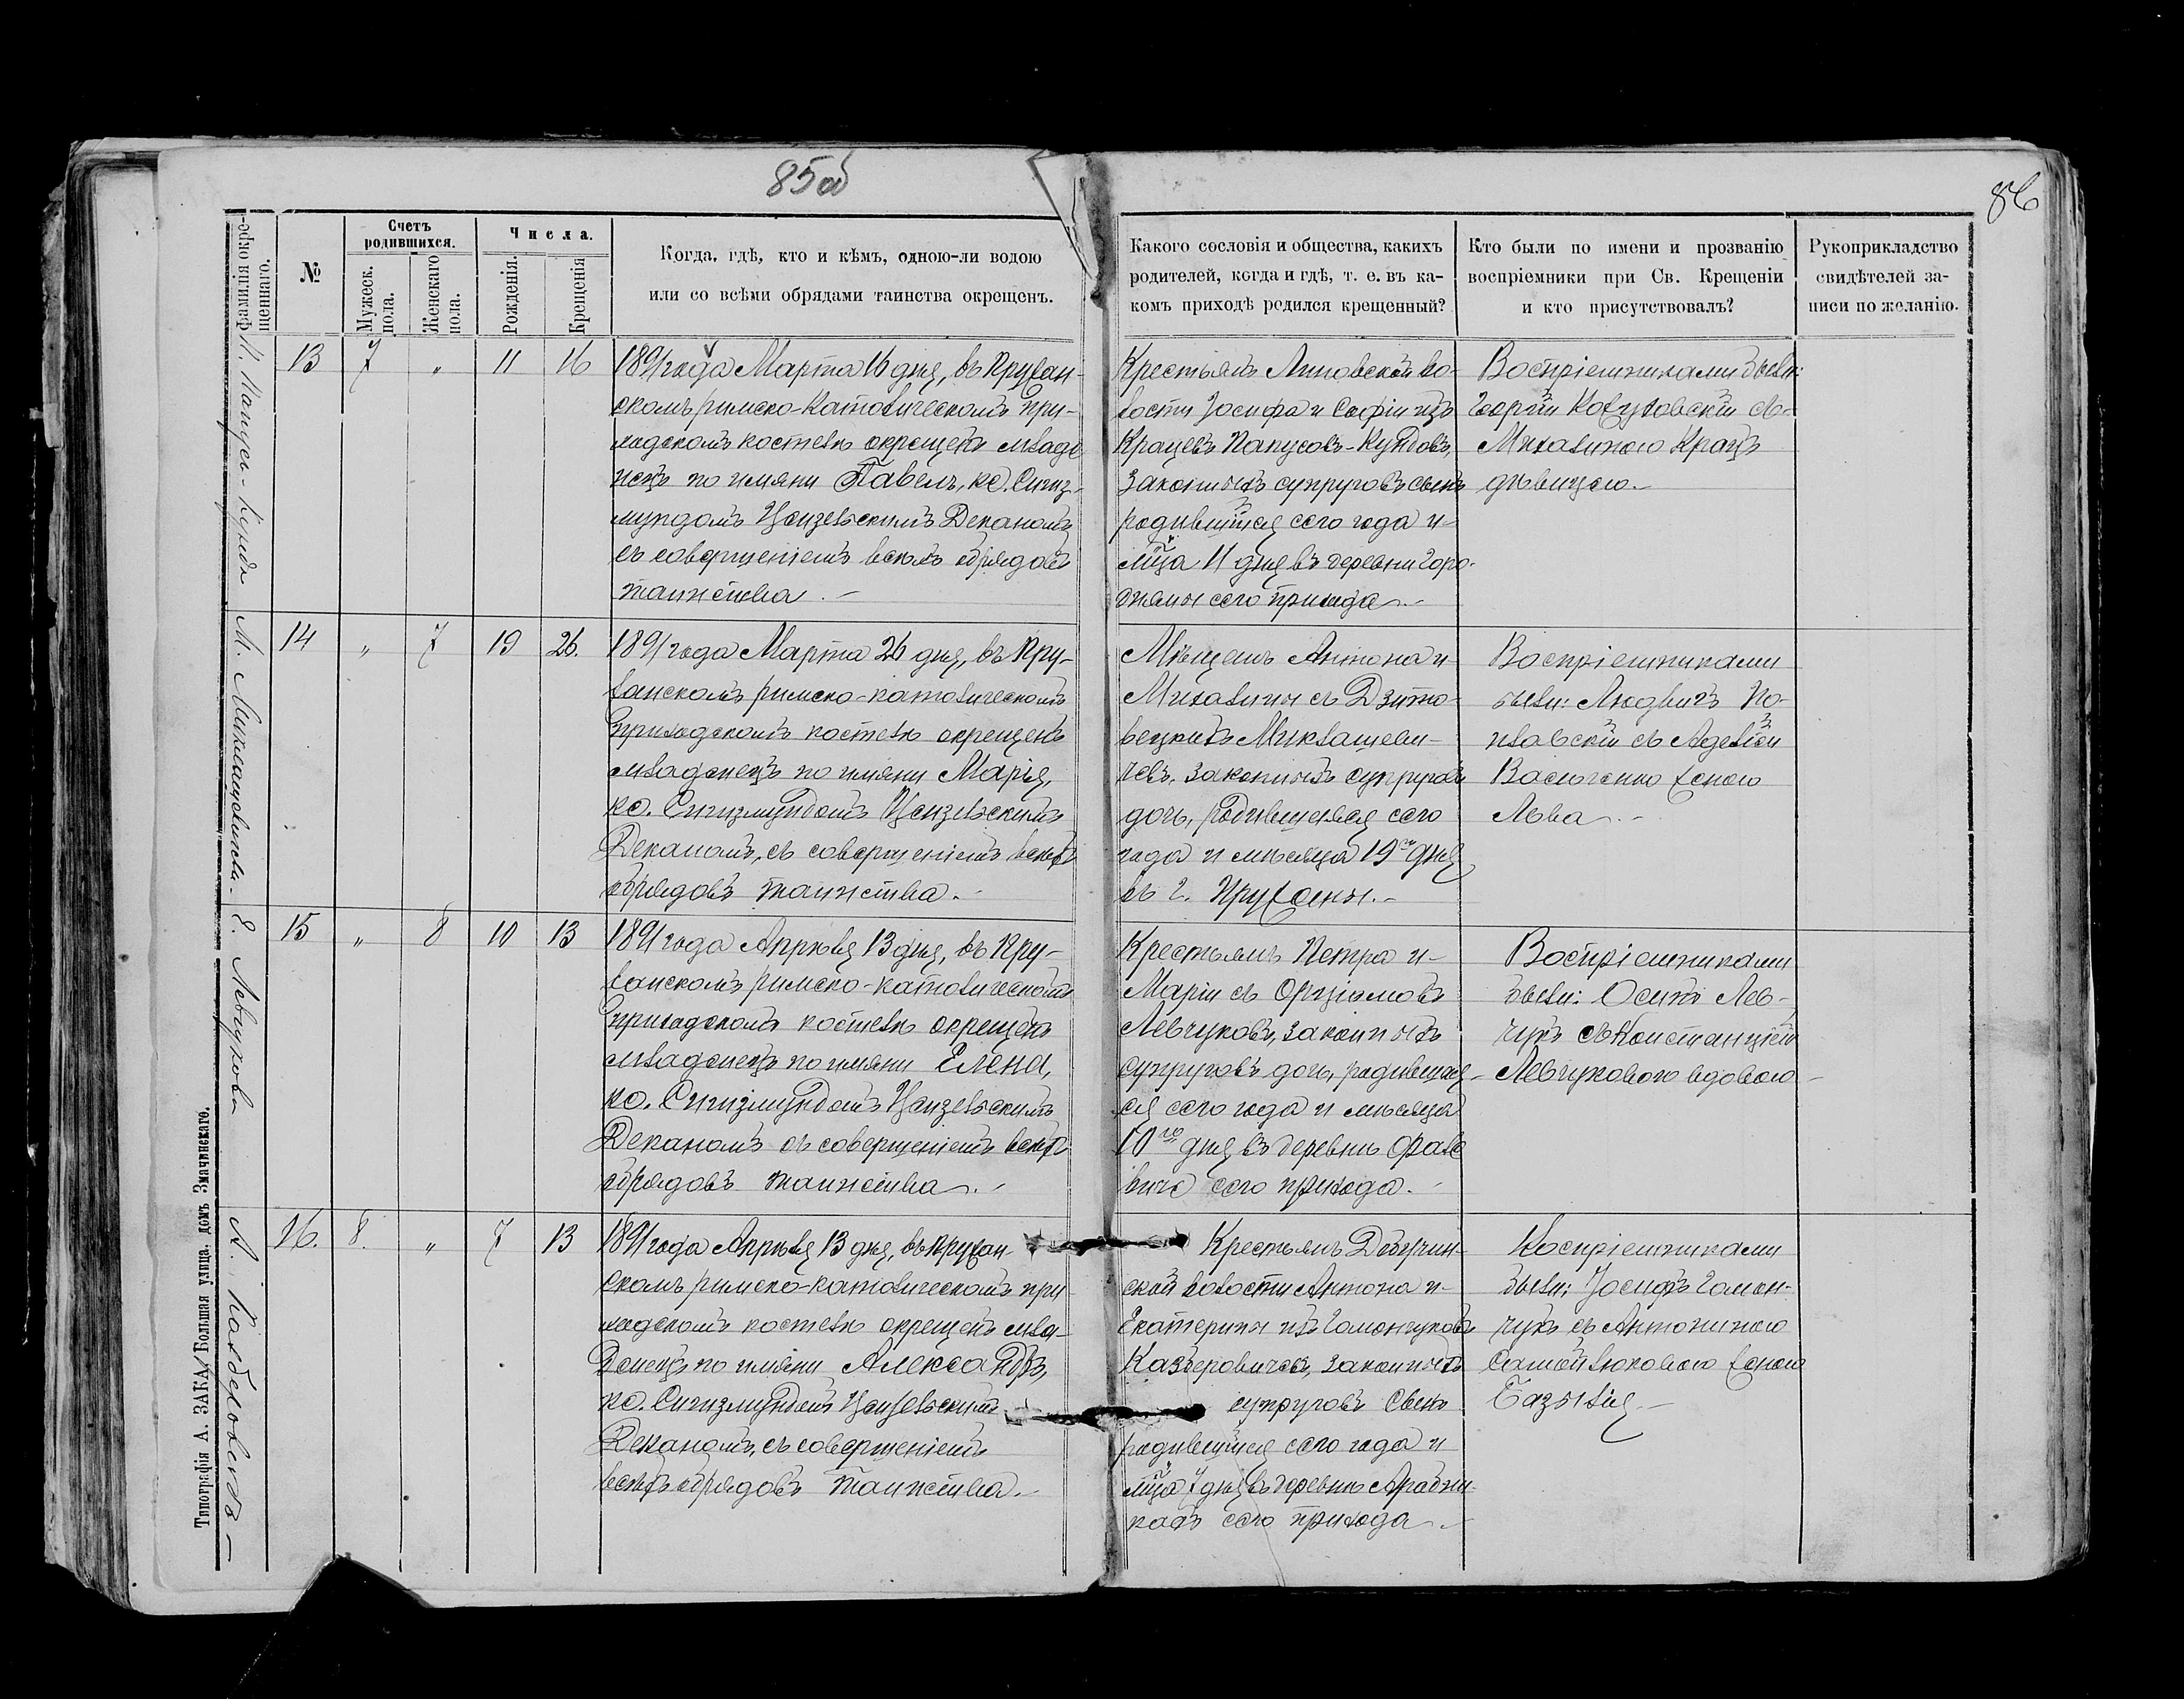 85об
86
фамилія окре-
щеннаго.
№
Счетъ
родившихся.
Мужеск.
пола.
Женскаго
пола.
Числа.
Рожденія.
Крещенія
Когда, гдѣ, кто и кѣмъ, одною-ли водою
или со всѣми обрядами таинства окрещенъ.
Какого сословія и общества, какихъ
родителей, когда и гдѣ, т. е. въ ка-
комъ приходѣ родился крещенный?
Кто были по имени и прозванію
воспріемники при Св. Крещеніи
и кто присутствовалъ?
Рукоприкладство
свидѣтелей за-
писи по желанію.
П. Папусъ-Кунда
13 7 „ 11 16
1891 года Марта 16 дня, въ Пружан-
скомъ римско-католическомъ при-
ходскомъ костелѣ окрещенъ младе
нецъ по имяни Павелъ, кс. Сигиз-
мундомъ Цензельскимъ Деканомъ
съ совершеніемъ всехъ обрядовъ
таинства. –
Крестьянъ Линовской во-
лости Іосифа и Софіи изъ
Крацевъ Папусовъ-Кундовъ,
законныхъ супруговъ сынъ
родившійся сего года и
мца 11 дня въ деревни Горо-
дняны сего прихода. –
Воспріемниками были:
Георгій Козловскій съ
Михалиною Крацъ
дѣвицею. –
М. Миклашевичова
14 „ 7 19 26.
1891 года Марта 26 дня, въ Пру-
жанскомъ римско-католическомъ
приходскомъ костелѣ окрещенъ
младенецъ по имяни Марія,
кс. Сигизмундомъ Цензельскимъ
Деканомъ, съ совершеніемъ всехъ
обрядовъ таинства. –
Мѣщанъ Антона и
Михалины съ Дзито-
вецкихъ Миклашеви-
чевъ, законныхъ супруговъ
дочь, родившаяся сего
года и мѣсяца 19го дня
въ г. Пружаны. –
Воспріемниками
были: Людвигъ
съ Аделіей
женою
Льва. –
Е. Левчукова
15 „ 8 10 13
1891 года Апрѣля 13 дня, въ Пру-
жанскомъ римско-католическомъ
приходскомъ костелѣ окрещенъ
младенецъ по имяни Елена,
кс. Сигизмундомъ Цензельскимъ
Деканомъ съ совершеніемъ всехъ
обрядовъ таинства. –
Крестьянъ Петра и
Маріи съ
Левчуковъ, законныхъ
супруговъ дочь, родившая-
ся сего года и мѣсяца
10го дня въ деревнѣ
сего прихода. –
Воспріемниками
были: Осипъ Лев-
чукъ съ Констанціей
Левчуковою вдовою –
А. Казберовичъ –
16. 8. „ 7 13
1891 года Апрѣля 13 дня, въ Пружан-
скомъ римско-католическомъ при-
ходскомъ костелѣ окрещенъ мла-
денецъ по имяни Александръ,
кс. Сигизмундомъ Цензельскимъ
Деканомъ, съ совершеніемъ
всехъ обрядовъ таинства. –
Крестьянъ Добучин-
ской волости Антона и
Екатерины изъ Гомончуковъ
Казберовичовъ, законныхъ
супруговъ сынъ
родившійся сего года и
мца 7 дня въ деревнѣ Арабни-
кахъ сего прихода. –
Воспріемниками
были: Іосифъ Гомон-
чукъ съ Антониною
Самойлюковою женою
Базылія. –
Типографія А. ЗАКА, Большая улица, домъ Змачинскаго.